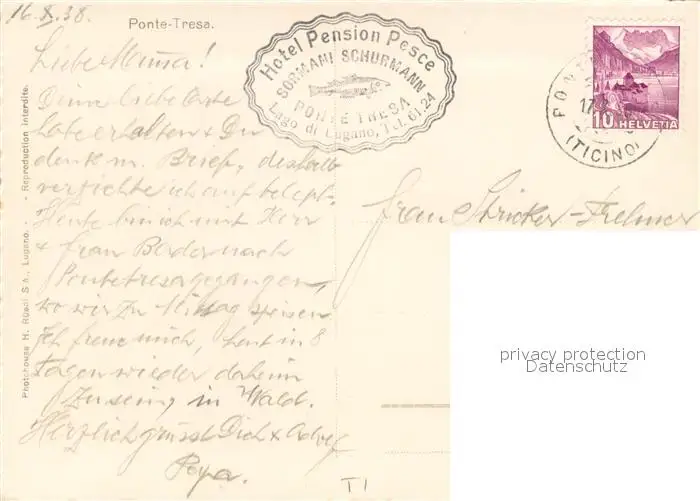 16.X.38.
Ponte-Tresa.
Liebe Mama!
Deine liebe Karte
habe erhalten & Du
denk m. Brief, deshalb
verzichte ich auf teleph.
Heute bin ich mit Herr
& Frau Border nach
Pontetresa gegangen,
wo wir zu Mittag speisen
Ich freue mich, heut in 8
Tagen wieder daheim
zu sein in Wald.
Herzlich grüsst Dich & Adolf
Papa.
TI
Photohouse H. Rüedi S.A., Lugano. - Reproduction interdite.
Hotel Pension Pesce
SORMANI SCHURMANN
PONTE TRESA
Lago di Lugano, Tel. 61 24
(TICINO)
10 HELVETIA
Frau Stricker-
privacy protection
Datenschutz